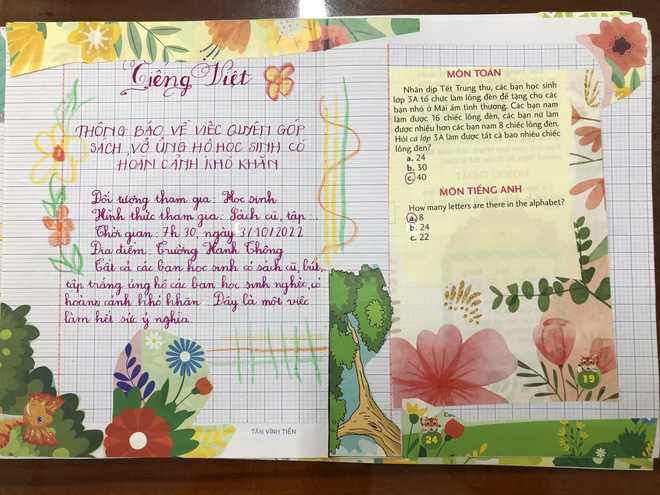 Tiếng Việt
THÔNG BÁO VỀ VIỆC QUYÊN GÓP
SÁCH, VỞ ỦNG HỘ HỌC SINH CÓ
HOÀN CẢNH KHÓ KHĂN
Đối tượng tham gia: Học sinh
Hình thức tham gia: Sách cũ, tập...
Thời gian: 7h 30, ngày 3/10/2022
Địa điểm: Trường Hanh Thông
Tất cả các bạn học sinh có sách cũ, bút,
tập trắng ủng hộ các bạn học sinh nghèo, có
hoàng cảnh khó khăn. Đây là một việc
làm hết sức ý nghĩa.
TÂN VĨNH TIẾN
MÔN TOÁN
Nhân dịp Tết Trung thu, các bạn học sinh
lớp 3A tổ chức làm lồng đèn để tặng cho các
bạn nhỏ ở Mái ấm tình thương. Các bạn nam
làm được 16 chiếc lồng đèn, các bạn nữ làm
được nhiều hơn các bạn nam 8 chiếc lồng đèn.
Hỏi cả lớp 3A làm được tất cả bao nhiêu chiếc
lồng đèn?
a. 24
b. 30
c. 40
MÔN TIẾNG ANH
How many letters are there in the alphabet?
a. 8
b. 24
c. 22
19
24